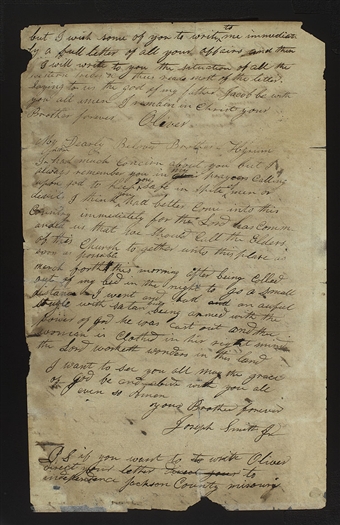 but I wish some of you to write to me immediately
by a full letter of all your affairs and then
I will write to you the situation of all the
most of the letter
in the god of my father Jacob be with
you all amen I remain in Christ your
Brother forever Oliver
My Dearly Beloved Brother Hyrum
I had much Concern about you but I
always remember you in my prayers Calling
upon god to keep you safe in spite men or
devils I think you had better Come into this
Country immediately for the Lord has Comm
anded us that we should Call the Elders
of this Church to gether unto this place as
soon as possable
March forth this morning after being Colled
out of my bed in the night to go a small
distance I went and had an awful
strugle with satan being armed with the
power of god he was cast out and the
woman is Clothed in her right mind
the Lord worketh wonders in this land
I want to see you all may the grace
of God be and abide with you all
even so Amen
your Brother forever
Joseph Smith Jr
P S if you want to write to Oliver
direct your letter to
independence Jackson County missouri